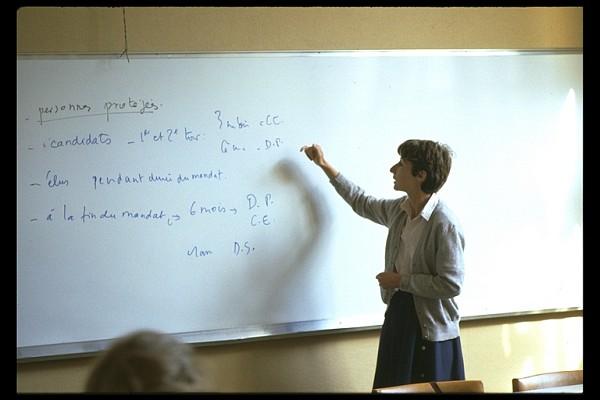 - personnes protégées.
- candidats - 1er et 2e tour: 3 mois - C.E.
6 m. - D.P.
- élus pendant durée du mandat.
- à la fin du mandat, → 6 mois → D.P.
C.E.
1 an D.S.